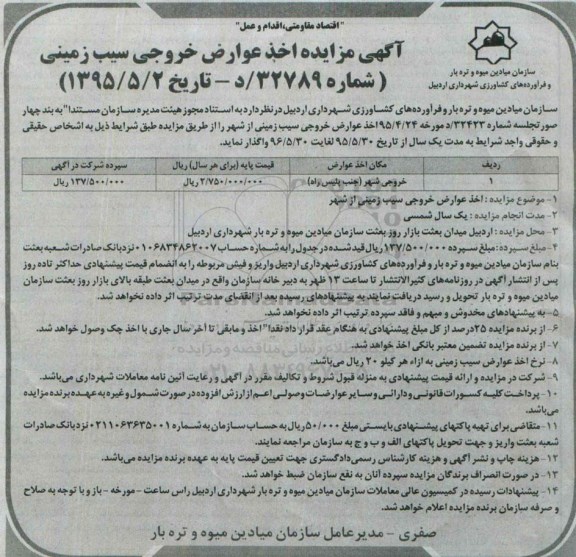 "اقتصاد مقاومتی،اقدام و عمل"
آگهی مزایده اخذ عوارض خروجی سیب زمینی
( شماره ۳۲۷۸۹/د – تاریخ ۱۳۹۵/۵/۲)
سازمان میادین میوه و تره بار
و فرآورده‌های کشاورزی شهرداری اردبیل
سازمان میادین میوه و تره بار و فرآورده‌های کشاورزی شهرداری اردبیل در نظر دارد به استناد مجوز هیئت مدیره سازمان مستندا" به بند چهار
صورتجلسه شماره ۳۲۴۲۳/د مورخه ۹۵/۴/۲۴ اخذ عوارض خروجی سیب زمینی از شهر را از طریق مزایده طبق شرایط ذیل به اشخاص حقیقی
و حقوقی واجد شرایط به مدت یک سال از تاریخ ۹۵/۵/۳۰ لغایت ۹۶/۵/۳۰ واگذار نماید.
ردیف مکان اخذ عوارض قیمت پایه (برای هر سال) ریال سپرده شرکت در آگهی
۱ خروجی شهر (جنب پلیس راه) ۲/۷۵۰/۰۰۰/۰۰۰ ریال ۱۳۷/۵۰۰/۰۰۰ ریال
۱- موضوع مزایده : اخذ عوارض خروجی سیب زمینی از شهر
۲- مدت انجام مزایده : یک سال شمسی
۳- محل مزایده : اردبیل میدان بعثت بازار روز بعثت سازمان میادین میوه و تره بار شهرداری اردبیل
۴- مبلغ سپرده: مبلغ سپرده ۱۳۷/۵۰۰/۰۰۰ ریال قید شده در جدول را به شماره حساب ۰۱۰۶۸۳۴۸۶۲۰۰۷ نزد بانک صادرات شعبه بعثت
بنام سازمان میادین میوه و تره بار و فرآورده‌های کشاورزی شهرداری اردبیل واریز و فیش مربوطه را به انضمام قیمت پیشنهادی حداکثر تا ده روز
پس از انتشار آگهی در روزنامه‌های کثیرالانتشار تا ساعت ۱۳ ظهر به دبیر خانه سازمان واقع در میدان بعثت طبقه بالای بازار روز بعثت سازمان
میادین میوه و تره بار تحویل و رسید دریافت نمایند به پیشنهادهای رسیده بعد از انقضای مدت ترتیب اثر داده نخواهد شد.
۵- به پیشنهادهای مخدوش و مبهم و فاقد سپرده ترتیب اثر داده نخواهد شد.
۶- از برنده مزایده ۲۵درصد از کل مبلغ پیشنهادی به هنگام عقد قرار داد نقدا" اخذ و مابقی تا آخر سال جاری با اخذ چک وصول خواهد شد.
۷- از برنده مزایده تضمین معتبر بانکی اخذ خواهد شد.
۸- نرخ اخذ عوارض سیب زمینی به ازاء هر کیلو ۲۰ ریال می‌باشد.
۹- شرکت در مزایده و ارائه قیمت پیشنهادی به منزله قبول شروط و تکالیف مقرر در آگهی و رعایت آئین نامه معاملات شهرداری می‌باشد.
۱۰- پرداخت کلیه کسورات قانونی و دارائی و سایر عوارضات وصولی اعم از ارزش افزوده در صورت شمول و غیره به عهده برنده مزایده
می‌باشد.
۱۱- متقاضی برای تهیه پاکتهای پیشنهادی بایستی مبلغ ۵۰/۰۰۰ ریال به حساب سازمان به شماره ۰۲۱۱۰۶۳۶۳۵۰۰۱ نزد بانک صادرات
شعبه بعثت واریز و جهت تحویل پاکتهای الف و ب و ج به سازمان مراجعه نمایند.
۱۲- هزینه چاپ و نشر آگهی و هزینه کارشناس رسمی دادگستری جهت تعیین قیمت پایه به عهده برنده مزایده می‌باشد.
۱۳- در صورت انصراف برندگان مزایده سپرده آنان به نفع سازمان ضبط خواهد شد.
۱۴- پیشنهادات رسیده در کمیسیون عالی معاملات سازمان میادین میوه و تره بار شهرداری اردبیل راس ساعت - مورخه - باز و با توجه به صلاح
و صرفه سازمان برنده مزایده اعلام خواهد شد.
صفری – مدیرعامل سازمان میادین میوه و تره بار